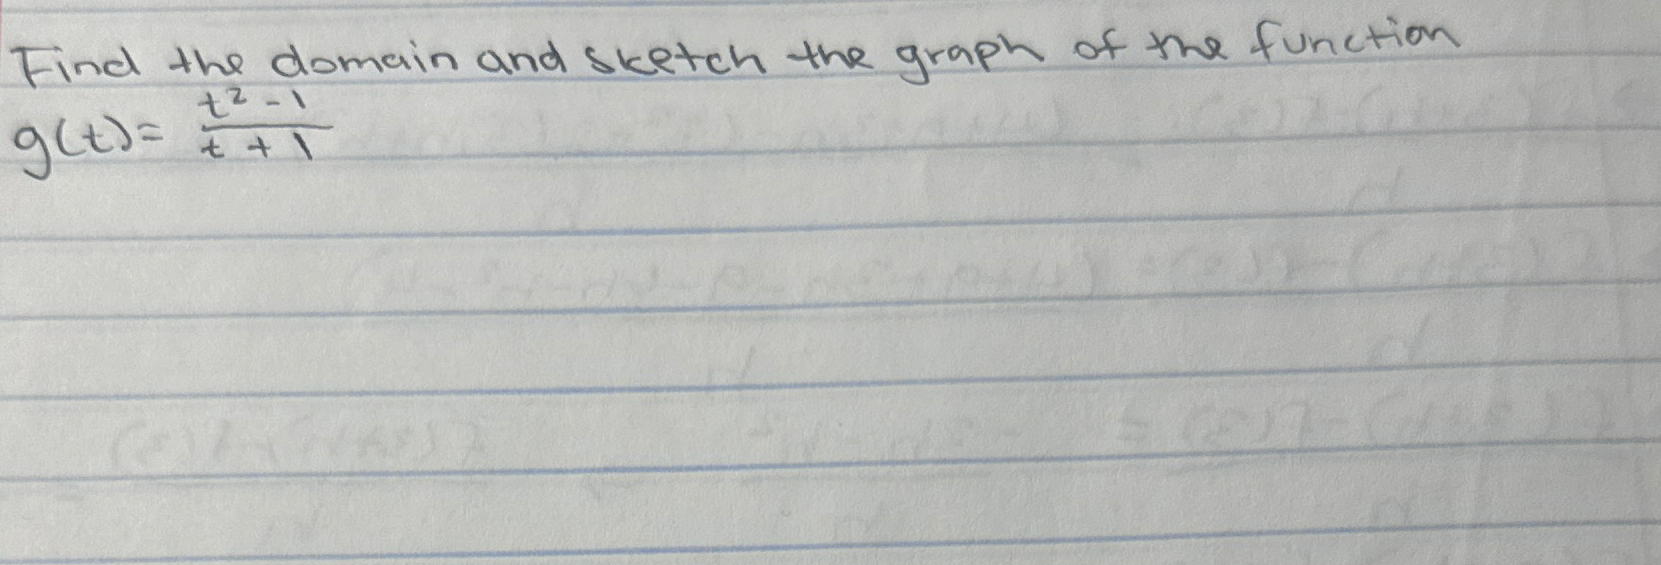 Find the domain and sketch the graph of the function
g(t)= t² - 1 / t + 1